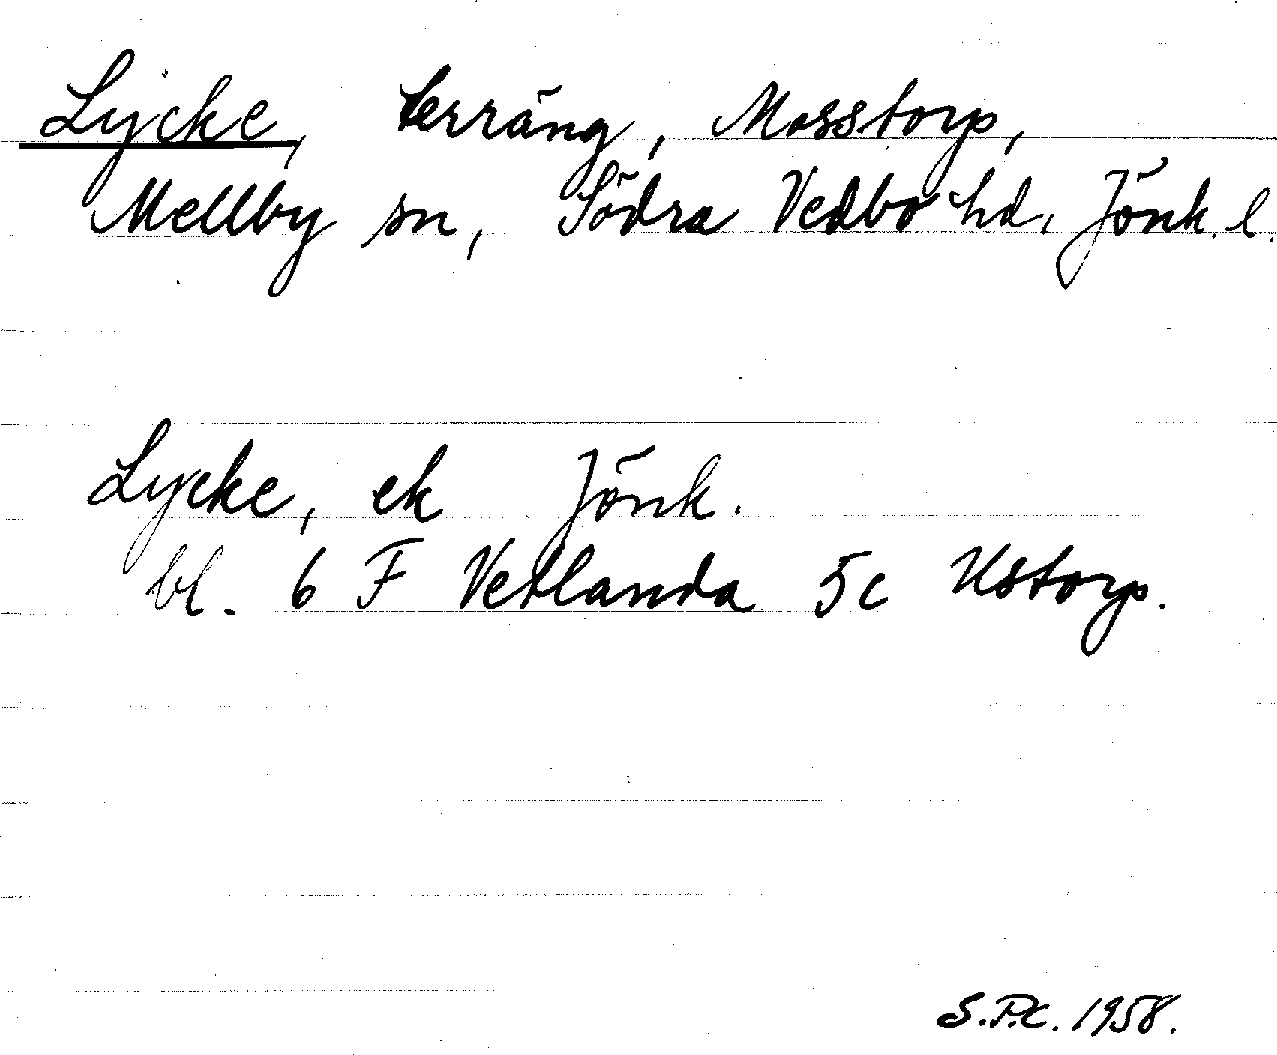 Lycke, terräng, Mosstorp,
Mellby sn, Södra Vedbo hd, Jönk. l.
Lycke, ek Jönk.
bl. 6 F Vetlanda 5c Ustorp.
S.P.C. 1958.